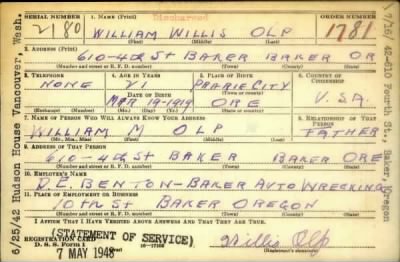 Discharged
SERIAL NUMBER 1. NAME (Print) ORDER NUMBER
2180 WILLIAM WILLIS OLP 1781
(First) (Middle) (Last)
2. ADDRESS (Print)
610-4th St BAKER BAKER OR
(Number and street or R. F. D. number) (Town) (County) (State)
3. TELEPHONE 4. AGE IN YEARS 5. PLACE OF BIRTH 6. COUNTRY OF CITIZENSHIP
NONE 21 PRAIRIE CITY
DATE OF BIRTH (Town or county)
MAR 19-1919 ORE U.S.A.
(Exchange) (Number) (Mo.) (Day) (Yr.) (State or country)
7. NAME OF PERSON WHO WILL ALWAYS KNOW YOUR ADDRESS 8. RELATIONSHIP OF THAT PERSON
WILLIAM M OLP FATHER
(Mr., Mrs., Miss) (First) (Middle) (Last)
9. ADDRESS OF THAT PERSON
610-4th St BAKER BAKER ORE
(Number and street or R. F. D. number) (Town) (County) (State)
10. EMPLOYER'S NAME
D.E. BENTON-BAKER AUTO WRECKING
11. PLACE OF EMPLOYMENT OR BUSINESS
10th St BAKER OREGON
(Number and street or R. F. D. number) (Town) (County) (State)
I AFFIRM THAT I HAVE VERIFIED ABOVE ANSWERS AND THAT THEY ARE TRUE.
REGISTRATION CARD (STATEMENT OF SERVICE) Willis Olp
D. S. S. FORM 1 (Registrant's signature)
7 MAY 1948
6/25/42 Hudson House Vancouver, Wash.
7/16/42-610 Fourth St., Baker, Oregon